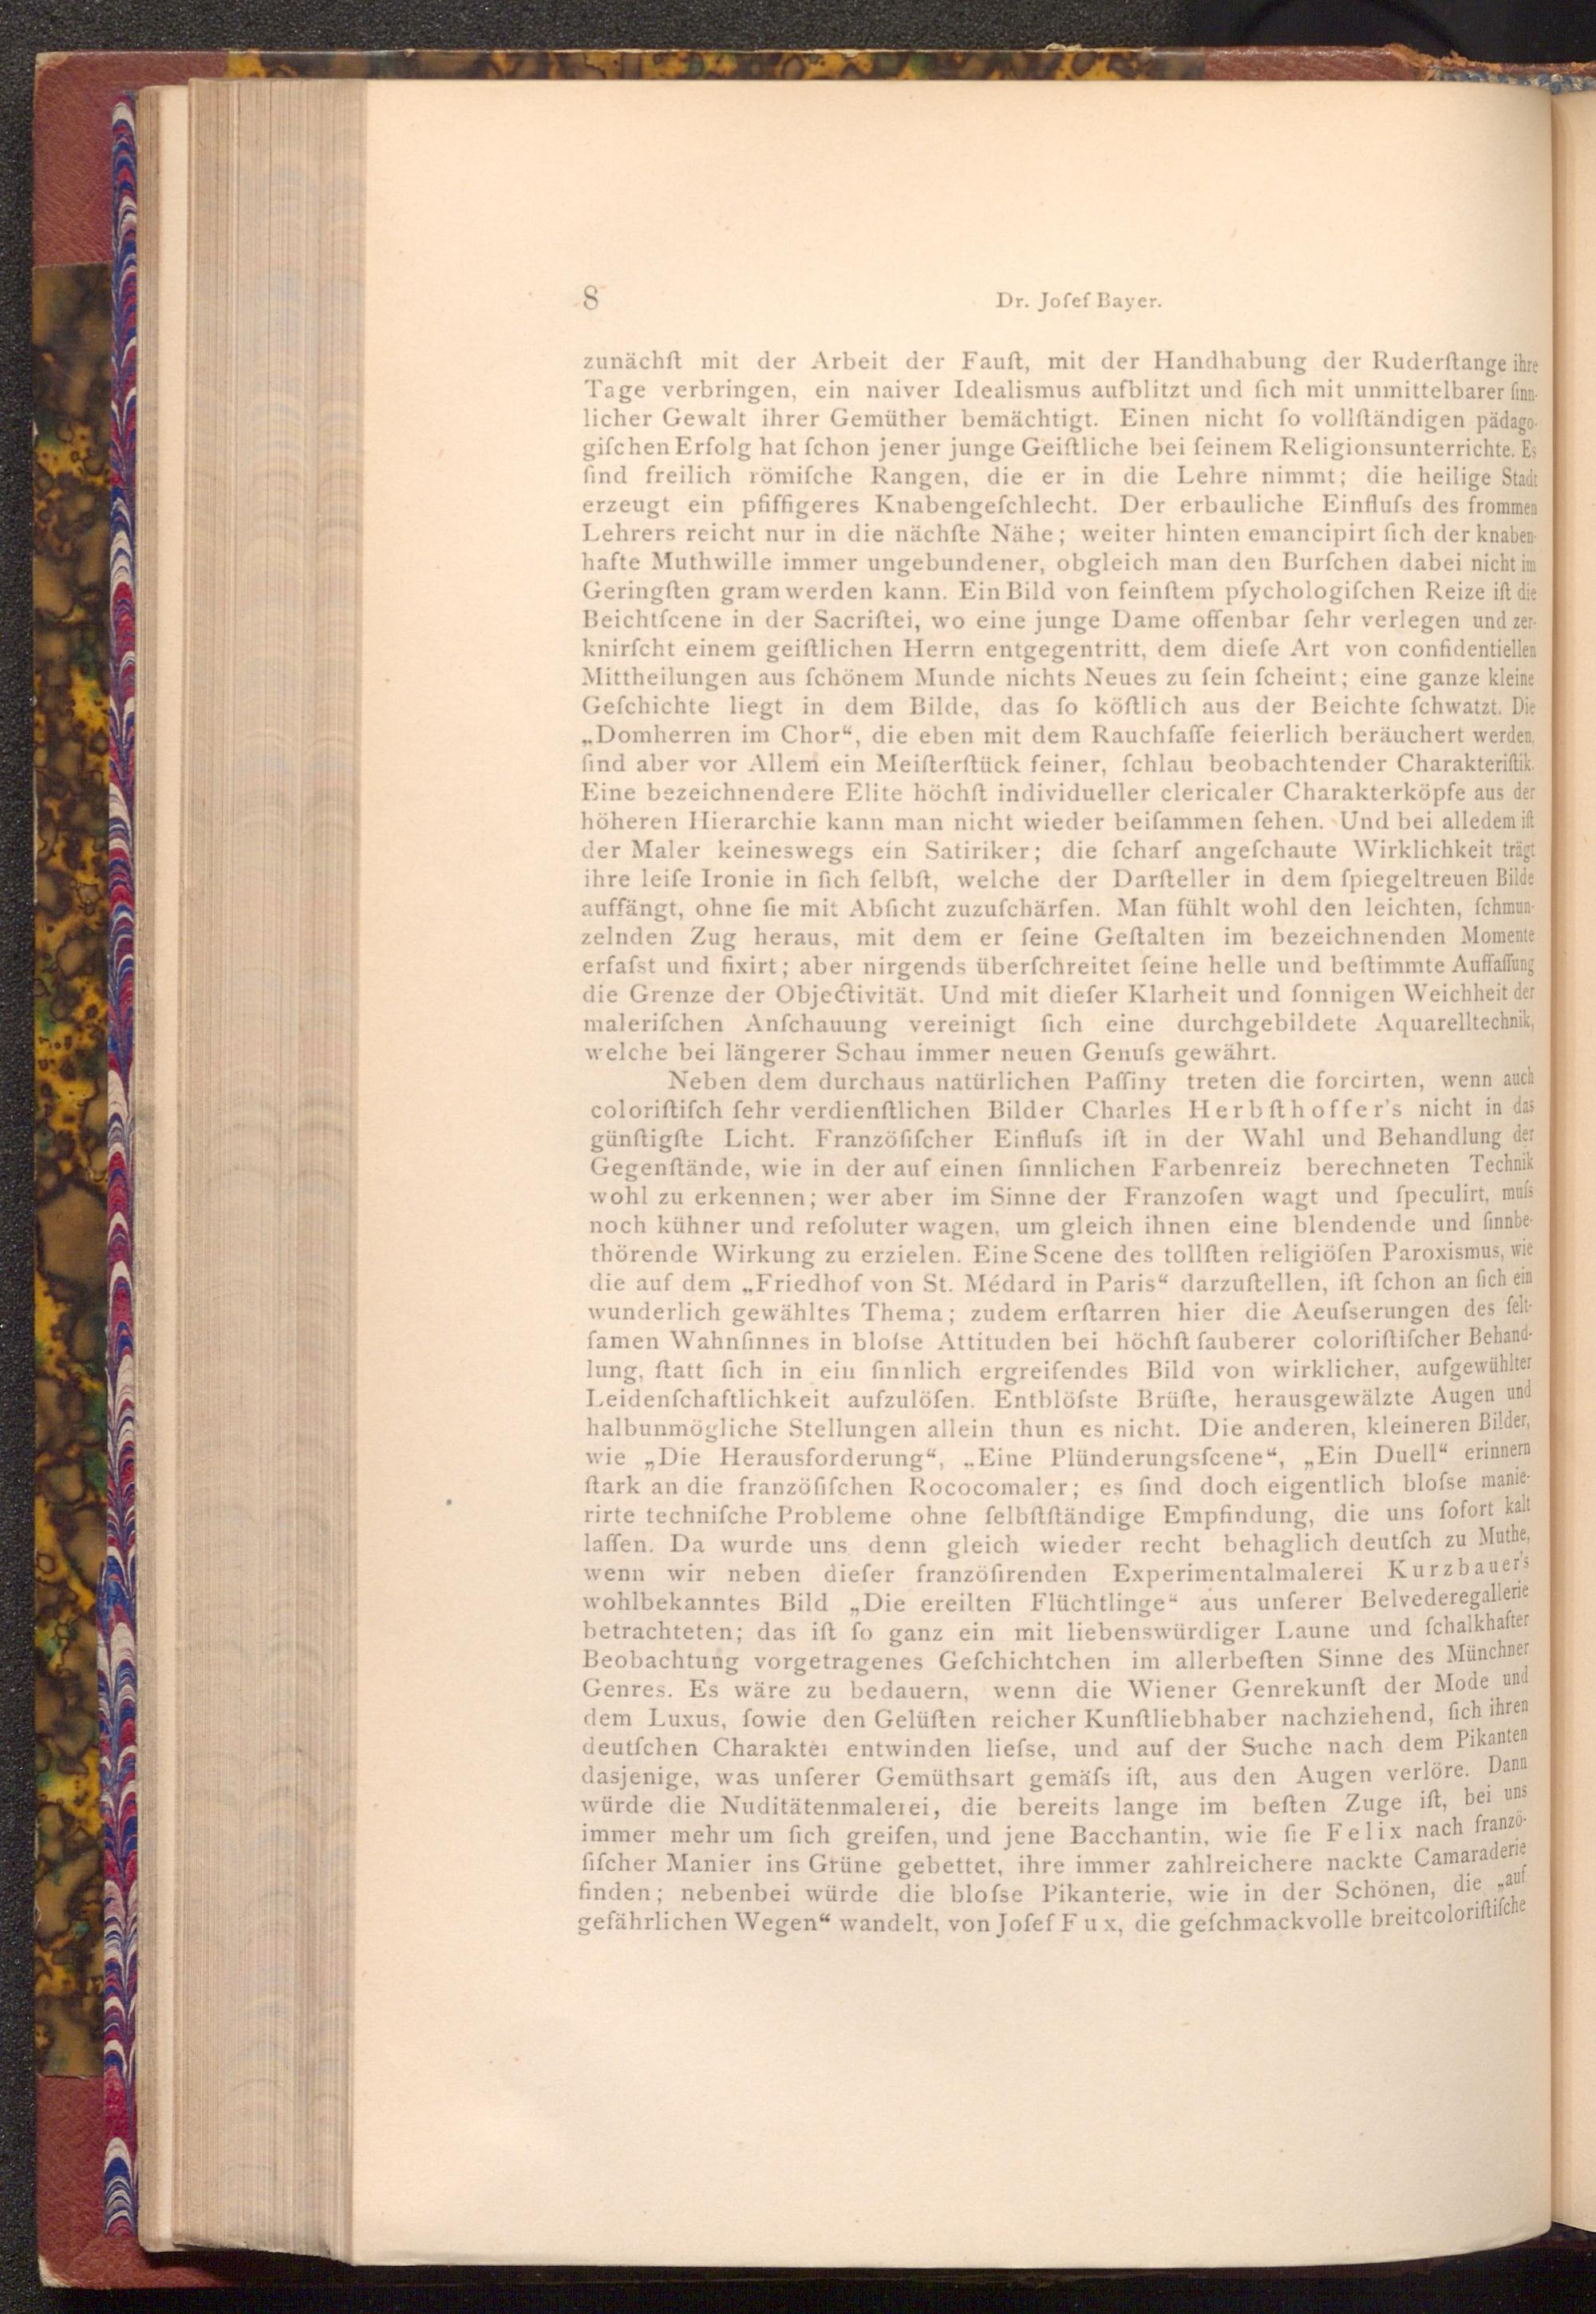 8
Dr. Joſef Bayer.
zunächſt mit der Arbeit der Fauſt, mit der Handhabung der Ruderſtange ihre
Tage verbringen, ein naiver Idealismus aufblitzt und ſich mit unmittelbarer ſinn-
licher Gewalt ihrer Gemüther bemächtigt. Einen nicht ſo vollſtändigen pädago-
giſchen Erfolg hat ſchon jener junge Geiſtliche bei ſeinem Religionsunterrichte. Es
ſind freilich römiſche Rangen, die er in die Lehre nimmt; die heilige Stadt
erzeugt ein pfiffigeres Knabengeſchlecht. Der erbauliche Einfluſs des frommen
Lehrers reicht nur in die nächſte Nähe; weiter hinten emancipirt ſich der knaben-
hafte Muthwille immer ungebundener, obgleich man den Burſchen dabei nicht im
Geringſten gram werden kann. Ein Bild von feinſtem pſychologiſchen Reize iſt die
Beichtſcene in der Sacriſtei, wo eine junge Dame offenbar ſehr verlegen und zer-
knirſcht einem geiſtlichen Herrn entgegentritt, dem dieſe Art von confidentiellen
Mittheilungen aus ſchönem Munde nichts Neues zu ſein ſcheint; eine ganze kleine
Geſchichte liegt in dem Bilde, das ſo köſtlich aus der Beichte ſchwatzt. Die
„Domherren im Chor“, die eben mit dem Rauchfaſſe feierlich beräuchert werden,
ſind aber vor Allem ein Meiſterſtück feiner, ſchlau beobachtender Charakteriſtik.
Eine bezeichnendere Elite höchſt individueller clericaler Charakterköpfe aus der
höheren Hierarchie kann man nicht wieder beiſammen ſehen. Und bei alledem iſt
der Maler keineswegs ein Satiriker; die ſcharf angeſchaute Wirklichkeit trägt
ihre leiſe Ironie in ſich ſelbſt, welche der Darſteller in dem ſpiegeltreuen Bilde
auffängt, ohne ſie mit Abſicht zuzuſchärfen. Man fühlt wohl den leichten, ſchmun-
zelnden Zug heraus, mit dem er ſeine Geſtalten im bezeichnenden Momente
erfaſst und fixirt; aber nirgends überſchreitet ſeine helle und beſtimmte Auffaſſung
die Grenze der Objectivität. Und mit dieſer Klarheit und ſonnigen Weichheit der
maleriſchen Anſchauung vereinigt ſich eine durchgebildete Aquarelltechnik,
welche bei längerer Schau immer neuen Genuſs gewährt.
Neben dem durchaus natürlichen Paſſiny treten die forcirten, wenn auch
coloriſtiſch ſehr verdienſtlichen Bilder Charles Herbſthoffer's nicht in das
günſtigſte Licht. Franzöſiſcher Einfluſs iſt in der Wahl und Behandlung der
Gegenſtände, wie in der auf einen ſinnlichen Farbenreiz berechneten Technik
wohl zu erkennen; wer aber im Sinne der Franzoſen wagt und ſpeculirt, muſs
noch kühner und reſoluter wagen, um gleich ihnen eine blendende und ſinnbe-
thörende Wirkung zu erzielen. Eine Scene des tollſten religiöſen Paroxismus, wie
die auf dem „Friedhof von St. Médard in Paris“ darzuſtellen, iſt ſchon an ſich ein
wunderlich gewähltes Thema; zudem erſtarren hier die Aeuſserungen des ſelt-
ſamen Wahnſinnes in bloſse Attituden bei höchſt ſauberer coloriſtiſcher Behand-
lung, ſtatt ſich in ein ſinnlich ergreifendes Bild von wirklicher, aufgewühlter
Leidenſchaftlichkeit aufzulöſen. Entblöſste Brüſte, herausgewälzte Augen und
halbunmögliche Stellungen allein thun es nicht. Die anderen, kleineren Bilder,
wie „Die Herausforderung“, „Eine Plünderungsſcene“, „Ein Duell“ erinnern
ſtark an die franzöſiſchen Rococomaler; es ſind doch eigentlich bloſse manie-
rirte techniſche Probleme ohne ſelbſtſtändige Empfindung, die uns ſofort kalt
laſſen. Da wurde uns denn gleich wieder recht behaglich deutſch zu Muthe,
wenn wir neben dieſer franzöſirenden Experimentalmalerei Kurzbauer's
wohlbekanntes Bild „Die ereilten Flüchtlinge“ aus unſerer Belvederegallerie
betrachteten; das iſt ſo ganz ein mit liebenswürdiger Laune und ſchalkhafter
Beobachtung vorgetragenes Geſchichtchen im allerbeſten Sinne des Münchner
Genres. Es wäre zu bedauern, wenn die Wiener Genrekunſt der Mode und
dem Luxus, ſowie den Gelüſten reicher Kunſtliebhaber nachziehend, ſich ihren
deutſchen Charakter entwinden lieſse, und auf der Suche nach dem Pikanten
dasjenige, was unſerer Gemüthsart gemäſs iſt, aus den Augen verlöre. Dann
würde die Nuditätenmalerei, die bereits lange im beſten Zuge iſt, bei uns
immer mehr um ſich greifen, und jene Bacchantin, wie ſie Felix nach franzö-
ſiſcher Manier ins Grüne gebettet, ihre immer zahlreichere nackte Camaraderie
finden; nebenbei würde die bloſse Pikanterie, wie in der Schönen, die „auf
gefährlichen Wegen“ wandelt, von Joſef Fux, die geſchmackvolle breitcoloriſtiſche